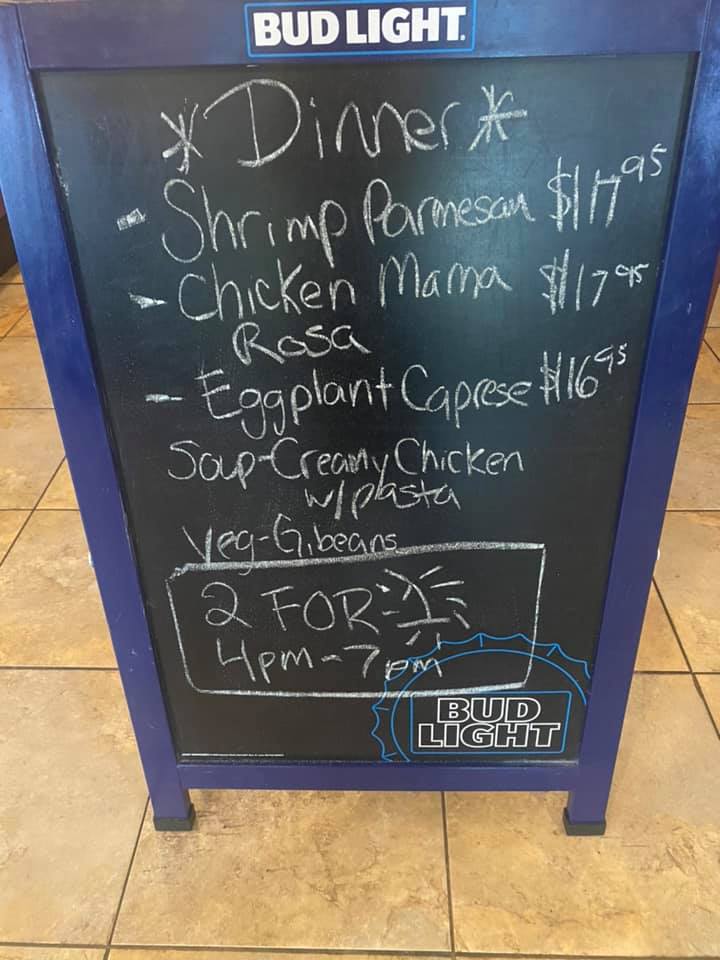 BUD LIGHT.
*Dinner*
- Shrimp Parmesan $17.95
- Chicken Mama $17.95
Rosa
- Eggplant Caprese $16.95
Soup-Creamy Chicken
w/pasta
Veg-G.beans
2 FOR 1
4pm-7pm
BUD
LIGHT